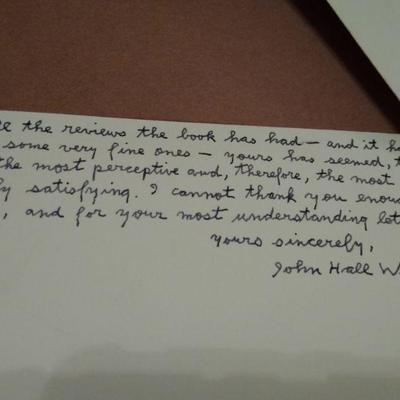 the reviews the book has had — and it ha
some very fine ones — yours has seemed, t
the most perceptive and, therefore, the most
ly satisfying. I cannot thank you enou
, and for your most understanding let
yours sincerely,
John Hall W